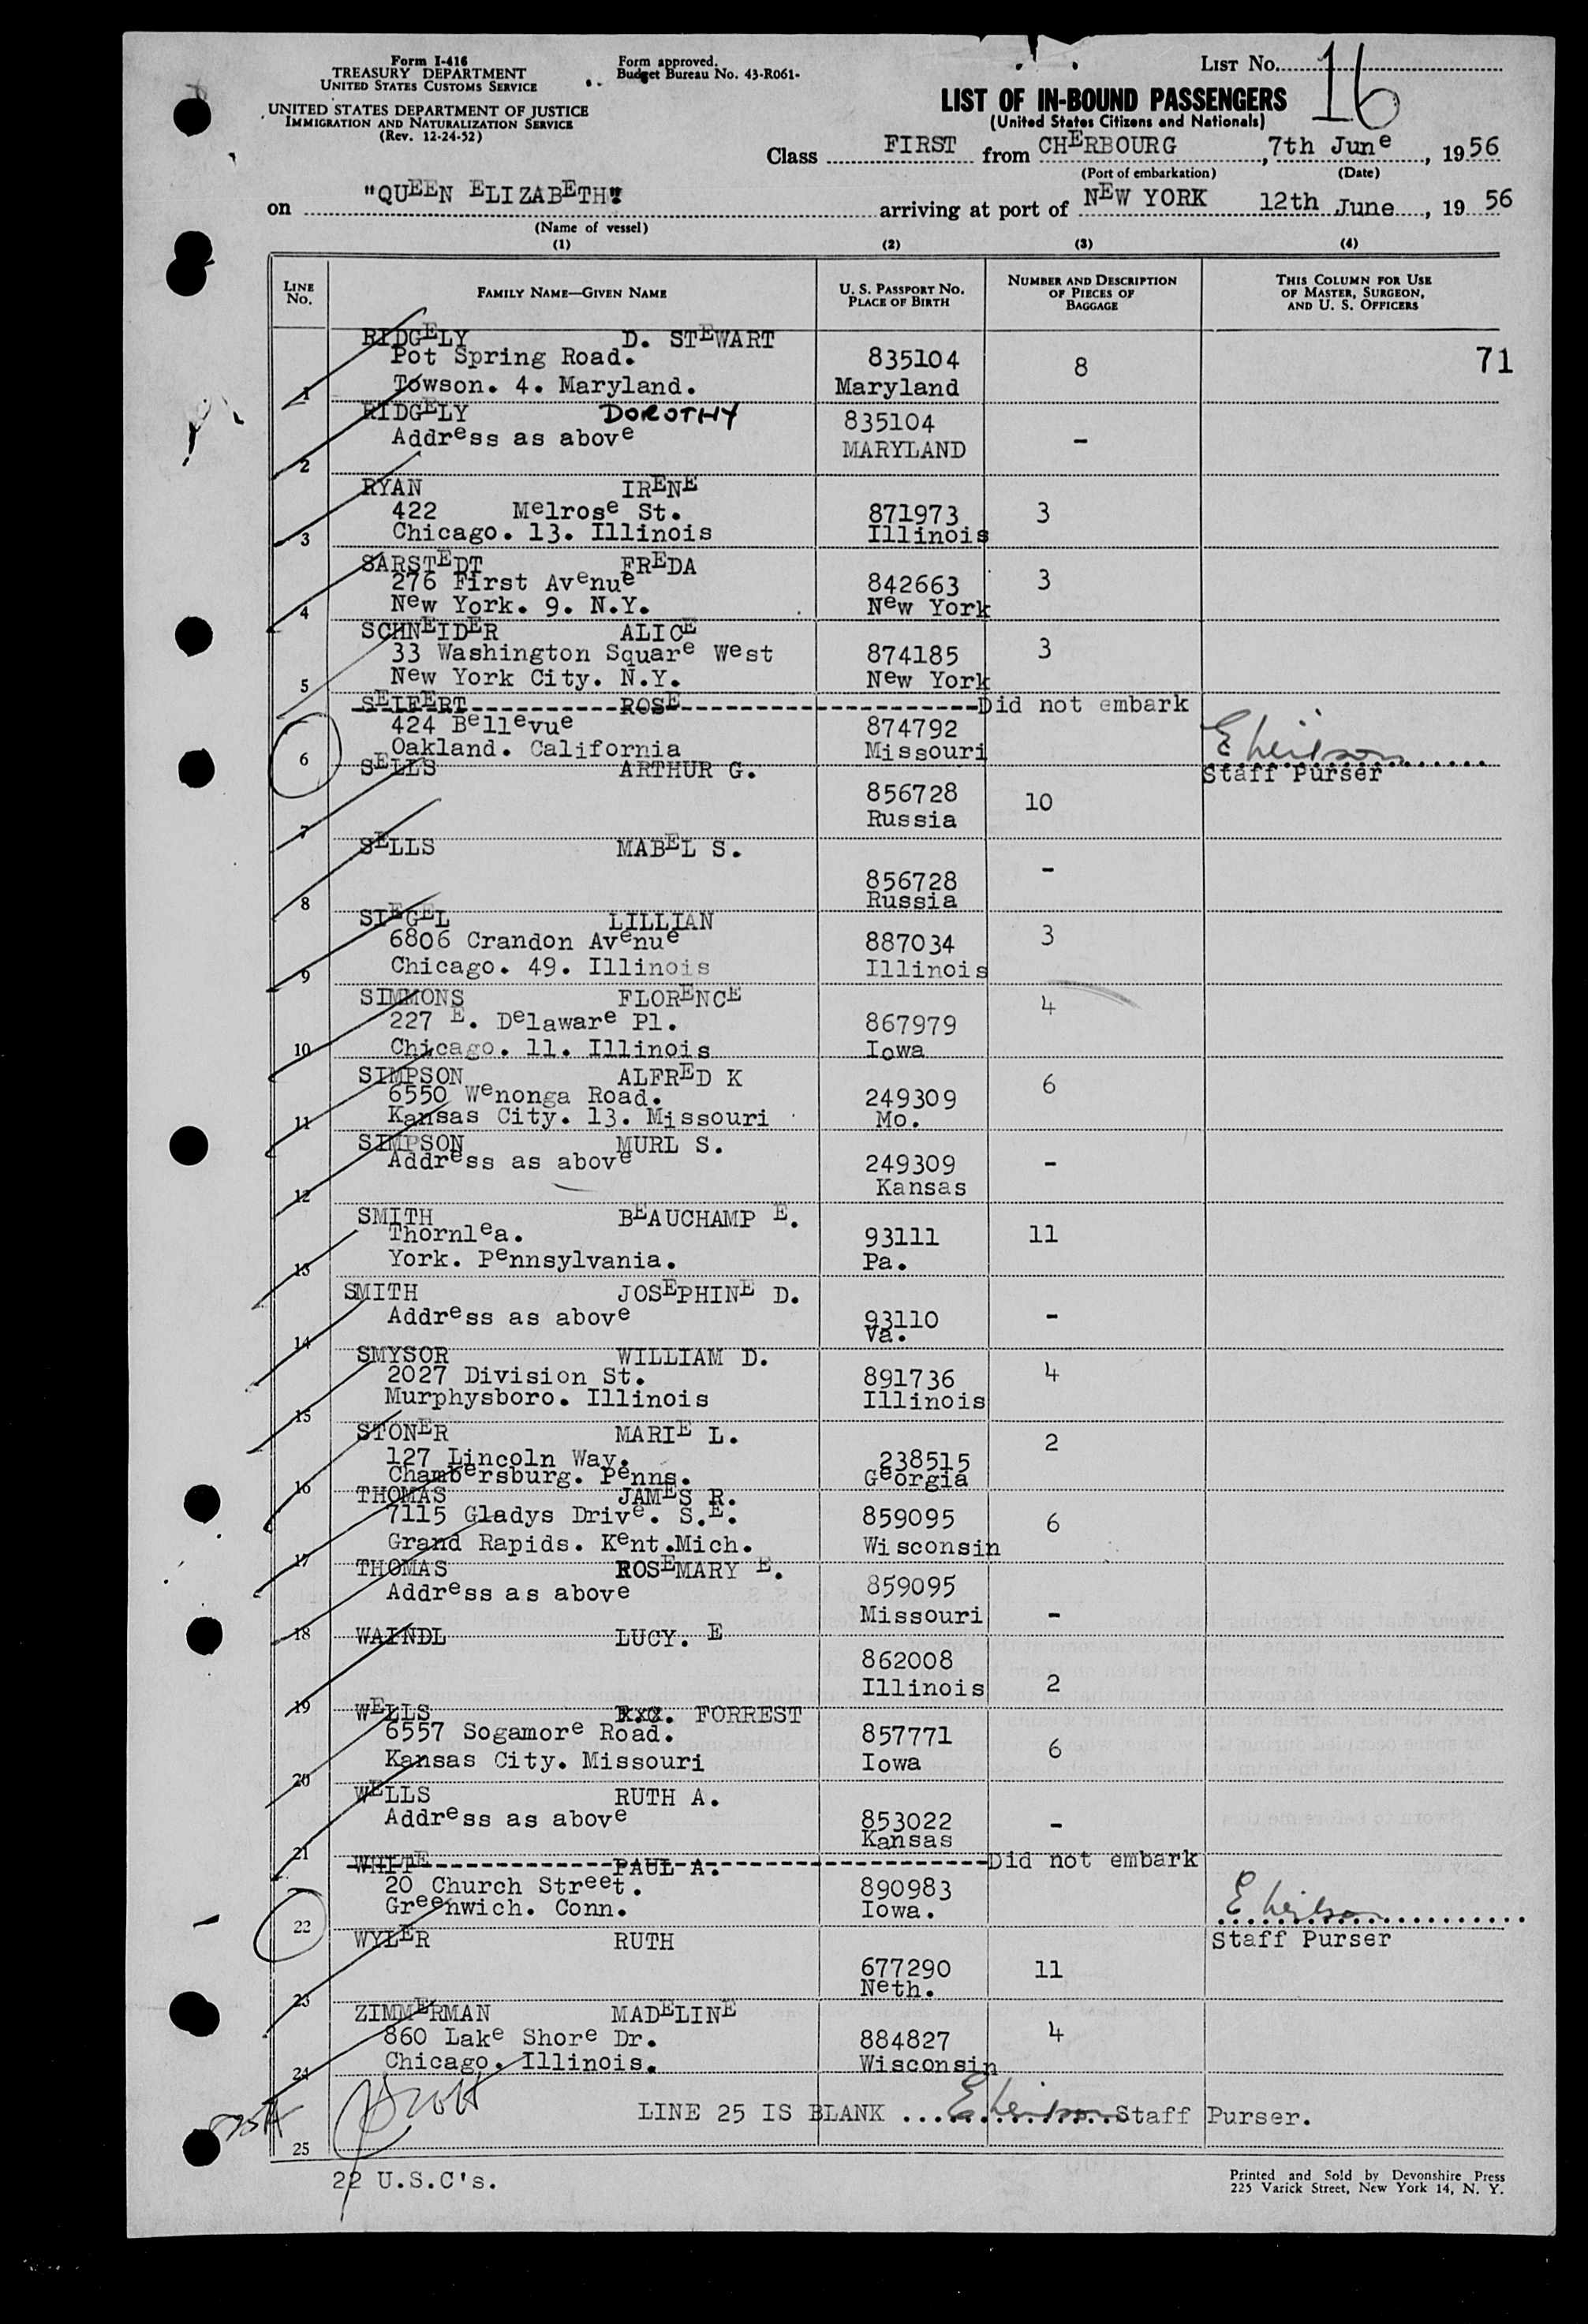 Form I-416
TREASURY DEPARTMENT
UNITED STATES CUSTOMS SERVICE
UNITED STATES DEPARTMENT OF JUSTICE
IMMIGRATION AND NATURALIZATION SERVICE
(Rev. 12-24-52)
Form approved.
Budget Bureau No. 43-R061-
LIST No. 16
LIST OF IN-BOUND PASSENGERS
(United States Citizens and Nationals)
Class FIRST from CHERBOURG, 7th June, 1956
(Port of embarkation) (Date)
on "QUEEN ELIZABETH" arriving at port of NEW YORK 12th June, 1956
(Name of vessel)
(1) (2) (3) (4)
LINE No. FAMILY NAME—GIVEN NAME U. S. PASSPORT NO. PLACE OF BIRTH NUMBER AND DESCRIPTION OF PIECES OF BAGGAGE THIS COLUMN FOR USE OF MASTER, SURGEON, AND U. S. OFFICERS
RIDGELY D. STEWART
Pot Spring Road. 835104 8 71
1 Towson. 4. Maryland. Maryland
RIDGELY DOROTHY 835104
Address as above MARYLAND -
2
RYAN IRENE
422 Melrose St. 871973 3
3 Chicago. 13. Illinois Illinois
SARSTEDT FREDA
276 First Avenue 842663 3
4 New York. 9. N.Y. New York
SCHNEIDER ALICE
33 Washington Square West 874185 3
5 New York City. N.Y. New York
SEIFERT ROSE Did not embark
424 Bellevue 874792
6 Oakland. California Missouri
SELLS ARTHUR G. Staff Purser
856728 10
7 Russia
SELLS MABEL S.
856728 -
8 Russia
SIEGEL LILLIAN
6806 Crandon Avenue 887034 3
9 Chicago. 49. Illinois Illinois
SIMMONS FLORENCE
227 E. Delaware Pl. 867979 4
10 Chicago. 11. Illinois Iowa
SIMPSON ALFRED K
6550 Wenonga Road. 249309 6
11 Kansas City. 13. Missouri Mo.
SIMPSON MURL S.
Address as above 249309 -
12 Kansas
SMITH BEAUCHAMP E.
Thornlea. 93111 11
13 York. Pennsylvania. Pa.
SMITH JOSEPHINE D.
Address as above 93110 -
14 Va.
SMYSOR WILLIAM D.
2027 Division St. 891736 4
15 Murphysboro. Illinois Illinois
STONER MARIE L. 2
127 Lincoln Way. 238515
16 Chambersburg. Penns. Georgia
THOMAS JAMES R.
7115 Gladys Drive. S.E. 859095 6
17 Grand Rapids. Kent.Mich. Wisconsin
THOMAS ROSEMARY E.
Address as above 859095
18 Missouri -
WAINDL LUCY. E
862008
19 Illinois 2
WELLS FORREST
6557 Sogamore Road. 857771 6
20 Kansas City. Missouri Iowa
WELLS RUTH A.
Address as above 853022 -
21 Kansas
WHITE PAUL A. Did not embark
20 Church Street. 890983
22 Greenwich. Conn. Iowa.
WYLER RUTH Staff Purser
677290 11
23 Neth.
ZIMMERMAN MADELINE
860 Lake Shore Dr. 884827 4
24 Chicago. Illinois. Wisconsin
LINE 25 IS BLANK Staff Purser.
25
22 U.S.C's.
Printed and Sold by Devonshire Press
225 Varick Street, New York 14, N. Y.